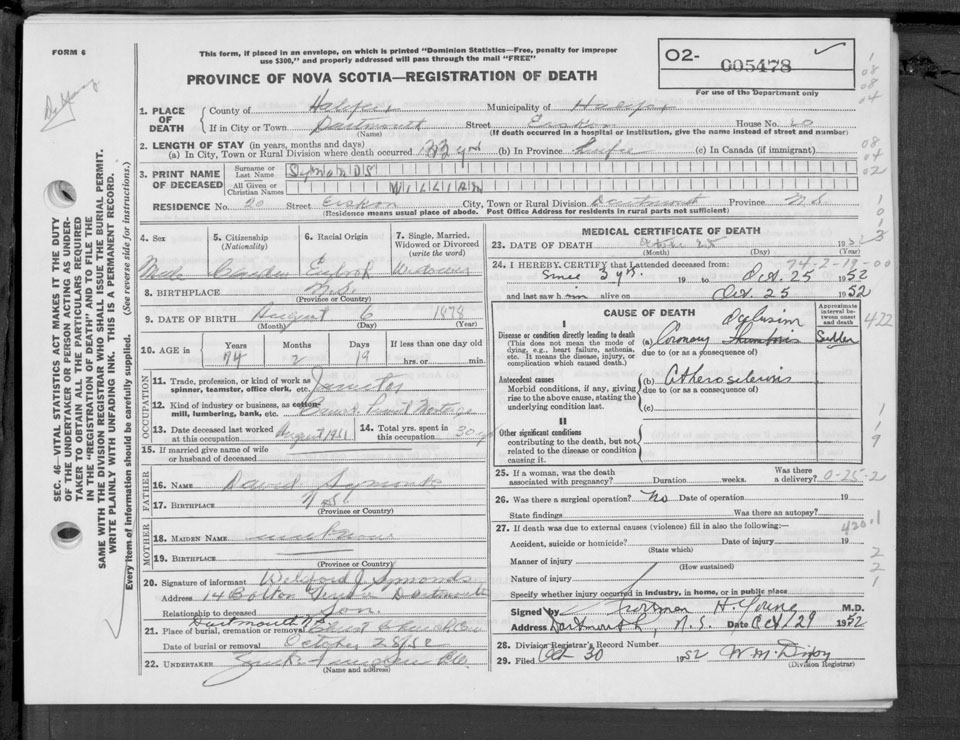 FORM 6
This form, if placed in an envelope, on which is printed "Dominion Statistics—Free, penalty for improper
use $300," and properly addressed will pass through the mail "FREE"
PROVINCE OF NOVA SCOTIA—REGISTRATION OF DEATH
02- 005478
For use of the Department only
SEC. 46—VITAL STATISTICS ACT MAKES IT THE DUTY
OF THE UNDERTAKER OR PERSON ACTING AS UNDER-
TAKER TO OBTAIN ALL THE PARTICULARS REQUIRED
IN THE "REGISTRATION OF DEATH" AND TO FILE THE
SAME WITH THE DIVISION REGISTRAR WHO SHALL ISSUE THE BURIAL PERMIT.
WRITE PLAINLY WITH UNFADING INK. THIS IS A PERMANENT RECORD.
Every item of information should be carefully supplied. (See reverse side for instructions.)
1. PLACE OF DEATH
County of Halifax Municipality of Halifax
If in City or Town Dartmouth Street Erskine House No. 20
(Name) (If death occurred in a hospital or institution, give the name instead of street and number)
2. LENGTH OF STAY (in years, months and days)
(a) In City, Town or Rural Division where death occurred 33 yrs (b) In Province Life (c) In Canada (if immigrant)
3. PRINT NAME OF DECEASED
Surname or Last Name SYMONDS
All Given or Christian Names WILLIAM
RESIDENCE No. 20 Street Erskine City, Town or Rural Division Dartmouth Province N.S.
(Residence means usual place of abode. Post Office Address for residents in rural parts not sufficient)
4. Sex
Male
5. Citizenship
(Nationality)
Canadian
6. Racial Origin
7. Single, Married,
Widowed or Divorced
(write the word)
Widower
8. BIRTHPLACE N.S.
(Province or Country)
9. DATE OF BIRTH August 6 1878
(Month) (Day) (Year)
10. AGE in Years Months Days If less than one day
74 2 19 hrs. or min.
OCCUPATION
11. Trade, profession, or kind of work as
spinner, teamster, office clerk, etc. Janitor
12. Kind of industry or business, as cotton-
mill, lumbering, bank, etc.
13. Date deceased last worked
at this occupation August 1951
14. Total yrs. spent in
this occupation 30 yrs
15. If married give name of wife
or husband of deceased
FATHER
16. NAME David Symonds
17. BIRTHPLACE N.S.
(Province or Country)
MOTHER
18. MAIDEN NAME unknown
19. BIRTHPLACE
(Province or Country)
20. Signature of informant Welsford J. Symonds
Address 14 Bolton Terrace Dartmouth
Relationship to deceased Son.
Dartmouth N.S.
21. Place of burial, cremation or removal Christ Church Cem
Date of burial or removal October 28/52
22. UNDERTAKER
(Name and address)
MEDICAL CERTIFICATE OF DEATH
23. DATE OF DEATH October 25 1952
(Month) (Day) (Year)
74-2-19-00
24. I HEREBY CERTIFY that I attended deceased from:
since 3 yrs. 19 to Oct. 25 1952
and last saw him alive on Oct. 25 1952
CAUSE OF DEATH
Approximate interval between onset and death
I
Disease or condition directly leading to death
(This does not mean the mode of
dying, e.g., heart failure, asthenia,
etc. It means the disease, injury, or
complication which caused death.)
Occlusion
(a) Coronary Thrombosis Sudden
due to (or as a consequence of)
Antecedent causes
Morbid conditions, if any, giving
rise to the above cause, stating the
underlying condition last.
(b) Atherosclerosis
due to (or as a consequence of)
(c)
II
Other significant conditions
contributing to the death, but not
related to the disease or condition
causing it.
25. If a woman, was the death
associated with pregnancy? Duration weeks. Was there
a delivery? 0-25-2
26. Was there a surgical operation? No Date of operation 19
State findings Was there an autopsy?
27. If death was due to external causes (violence) fill in also the following:— 420.1
Accident, suicide or homicide? Date of injury 19
(State which)
Manner of injury
(How sustained)
Nature of injury
Specify whether injury occurred in industry, in home, or in public place
Signed by H. Young M.D.
Address Dartmouth, N.S. Date Oct. 29 1952
28. Division Registrar's Record Number
29. Filed Oct 30 1952
(Division Registrar)
422